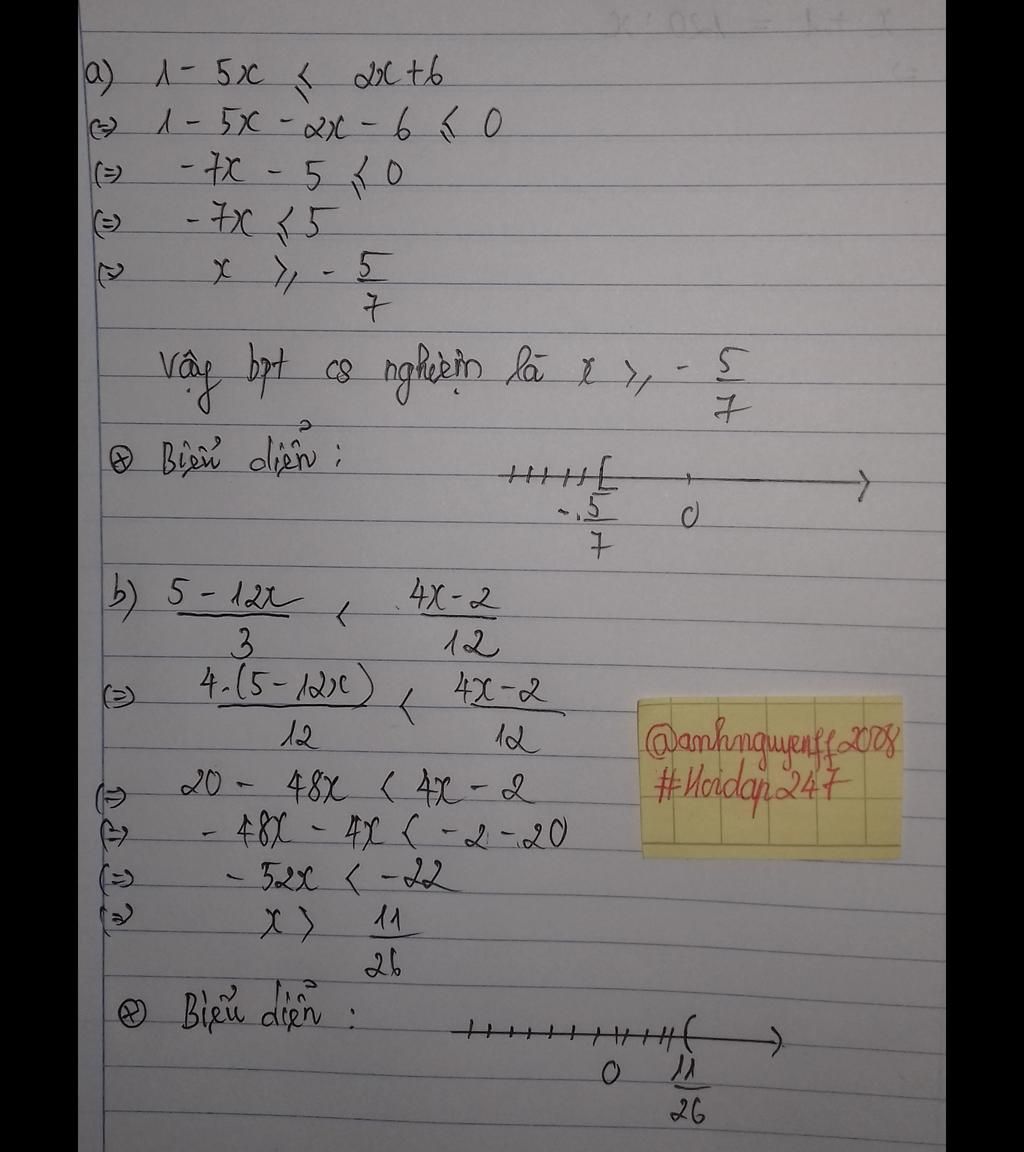 a) 1 - 5x ⩽ 2x + 6
(=) 1 - 5x - 2x - 6 ⩽ 0
(=) - 7x - 5 ⩽ 0
(=) - 7x ⩽ 5
(=) x ⩾ - 5/7
Vậy bpt có nghiệm là x ⩾ - 5/7
⊛ Biểu diễn :
- 5/7 0
b) (5 - 12x)/3 < (4x - 2)/12
(=) 4.(5 - 12x)/12 < (4x - 2)/12
(=) 20 - 48x < 4x - 2
(=) - 48x - 4x < - 2 - 20
(=) - 52x < - 22
(=) x > 11/26
⊛ Biểu diễn :
0 11/26
@anhnguyenff2008
#Hoidap247